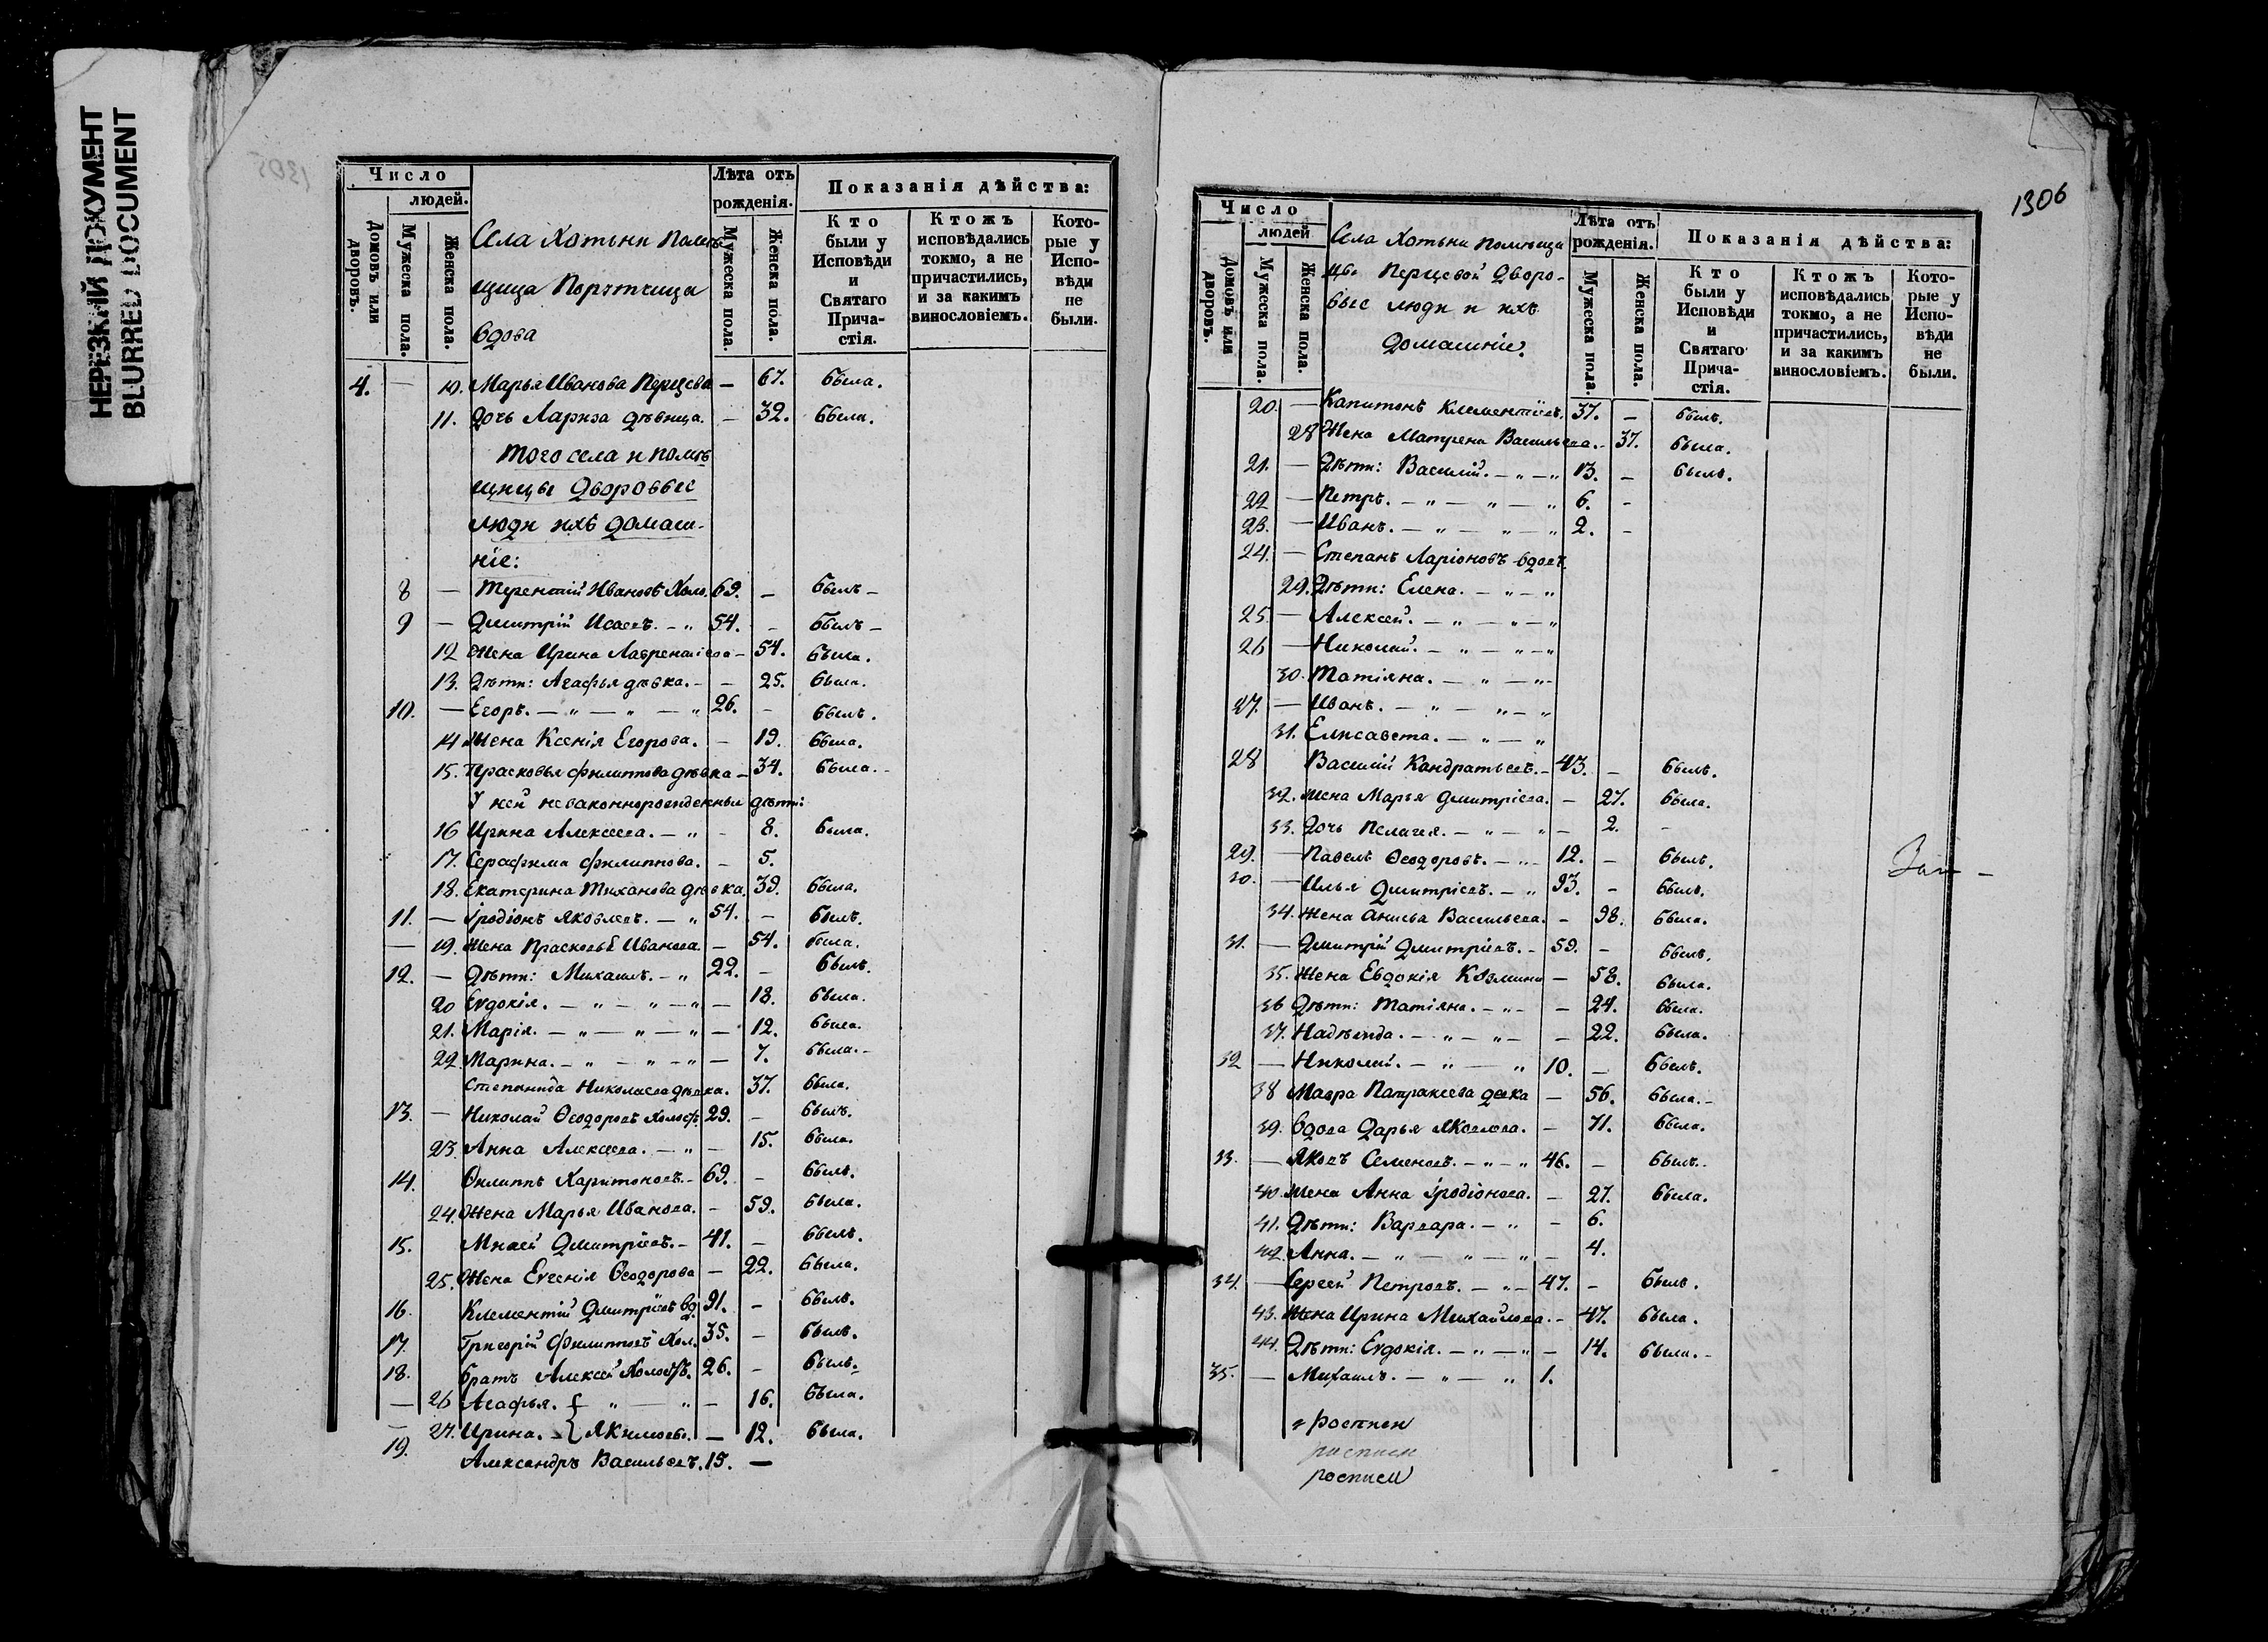 НЕРЕЗКИЙ ДОКУМЕНТ
BLURRED DOCUMENT
Число
людей.
Домовъ или дворовъ.
Мужеска пола.
Женска пола.
Села Хотыни Помѣ
щица Порутчица
вдова
Лѣта отъ рожденія.
Мужеска пола.
Женска пола.
Показанія дѣйства:
Кто были у Исповѣди и Святаго Причастія.
Ктожъ исповѣдались токмо, а не причастились, и за какимъ винословіемъ.
Которые у Исповѣди не были.
4. — 10. Марья Иванова Перцева — 67. была.
11. Дочь Лариза дѣвица. — 32. была.
Того села и помѣ
щицы Дворовыс
люди ихъ домаш-
ніе:
8 — Терентій Ивановъ Холо. 69. — былъ —
9 — Дмитрій Исаевъ. — „ 54. — былъ —
12 Жена Ирина Лаврентіева — 54. была.
13. Дѣти: Агафья дѣвка. — — 25. была.
10. — Егоръ. — „ — „ — „ 26. — былъ.
14 Жена Ксенія Егорова. — 19. была.
15. Прасковья Филиппова дѣвка — 34. была. -
У ней незаконнорожденныи дѣти:
16 Ирина Алексеева. — „ — 8. была.
17. Серафима Филиппова. — 5.
18. Екатерина Тиханова дѣвка. 39. была.
11. — Іродіонъ Яковлевъ. — „ 54. — былъ.
— 19. Жена Прасковьѣ Иванова. — 54. была.
12. — Дѣти: Михаилъ. — „ 22. — былъ.
20 Евдокія. — „ — „ — „ — 18. была.
21. Марія. — „ — „ — „ — 12. была.
22. Марина. — „ — „ — „ — 7. была. -
Степанида Николаева дѣвка. 37. была.
13. — Николай Ѳеодоровъ Холосф. 29. — былъ.
23. Анна Алексеева. — „ — 15. была.
14. Филиппъ Харитоновъ. — 69. — былъ.
24. Жена Марья Иванова. — 59. была.
15. Мисей Дмитріевъ. — 41. — былъ.
25. Жена Евгенія Ѳеодорова — 22. была.
16. Клементій Дмитріевъ вд. 91. — былъ.
17. Григорій Филипповъ Хол. 35. — былъ.
18. братъ Алексей Холостъ. 26. — былъ.
— 26 Агафья. { „ — „ — 16. была.
— 27. Ирина. — { Якимовы. — 12. была.
19. Александръ Васильевъ. 15. —
1306
Число
людей
Домовъ или дворовъ.
Мужеска пола.
Женска пола.
Села Хотыни Помѣщи
цы Перцевой Дворо-
выс люди и ихъ
домашніе.
Лѣта отъ рожденія.
Мужеска пола.
Женска пола.
Показанія дѣйства:
Кто были у Исповѣди и Святаго Причастія.
Ктожъ исповѣдались токмо, а не причастились, и за какимъ винословіемъ.
Которые у Исповѣди не были.
20. — Капитонъ Клементіевъ. 37. — былъ.
28 Жена Матрена Васильева. — 37. была.
21. — Дѣти: Василій. — „ — „ 13. — былъ.
22 — Петръ. — „ — „ — „ 6. -
23. — Иванъ. — „ — „ — „ 2. -
24. — Степанъ Ларіоновъ вдовъ.
29. Дѣти: Елена. — „ — „
25. — Алексей. — „ — „ — „
26 — Николай. — „ — „ — „
30. Татіяна. — „ — „ -
27. — Иванъ. — „ — „ — „
31. Елисавета. — „ — „
28 Василій Кандратьевъ. — 43. — былъ.
32. Жена Марья Дмитріева. — 27. была.
33. Дочь Пелагея. — „ — „ — 2. -
29. — Павелъ Ѳеодоровъ. — „ — 12. — былъ.
30. — Илья Дмитріевъ. — „ 93. — былъ.
34. Жена Анисья Васильева. — 98. была.
31. — Дмитрій Дмитріевъ. — 59. — былъ.
35. Жена Евдокія Козмина — 58. была.
36 Дѣти: Татіяна. — „ — — 24. была.
37. Надежда. — „ — „ — — 22. была.
32 — Николай. — „ — „ 10. — былъ.
38 Мавра Патракеева девка — 56. была. -
39. Вдова Дарья Яковлева. — 71. была.
33. — Яковъ Семеновъ. — „ — „ 46. — былъ.
40. Жена Анна Іродіонова. — 27. была.
41. Дѣти: Варвара. — „ — 6.
42. Анна. — „ — „ — „ — 4.
34. — Сергей Петровъ. — „ — 47. — былъ.
43. Жена Ирина Михайлова. — 47. была.
44. Дѣти: Евдокія. — „ — „ — 14. была. -
35. — Михаилъ. — „ — „ 1.
росписи
росписи
росписи